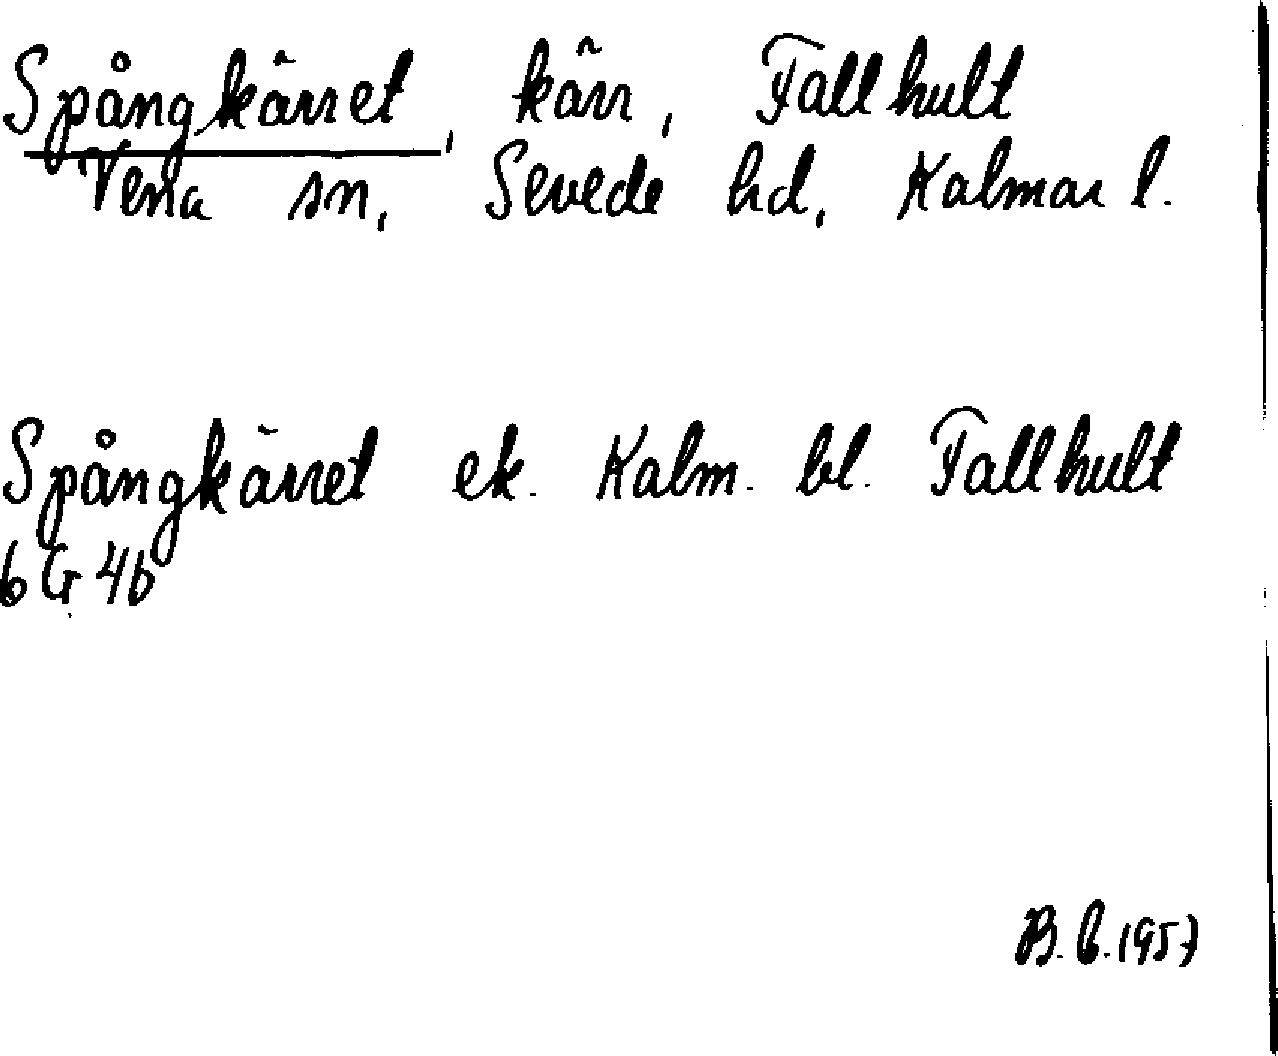 Spångkärret, kärr, Fallhult
Vena sn, Sevede hd, Kalmar l.
Spångkärret ek. Kalm. bl. Fallhult
6 G 4b
B. L. 1957